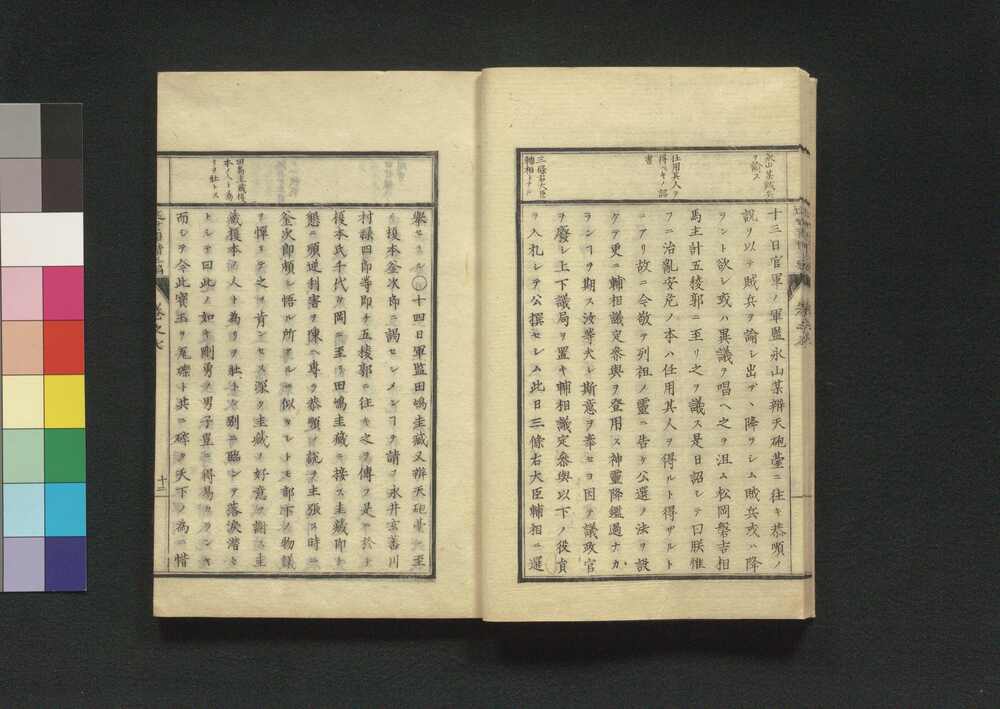 永山某賊兵
ヲ諭ス
任用其人ヲ
得ベキノ詔
書
三條右大臣
輔相トナル
十三日官軍ノ軍監永山某辨天砲臺ニ往キ恭順ノ
説ヲ以テ賊兵ヲ諭シ出デヽ降ラシム賊兵或ハ降
ラント欲シ或ハ異議ヲ唱ヘ之ヲ沮ム松岡磐吉相
馬主計五稜郭ニ至リ之ヲ議ス是日詔シテ曰朕惟
フニ治亂安危ノ本ハ任用其人ヲ得ルト得ザルト
ニアリ故ニ今敬テ列祖ノ靈ニ告ケ公選ノ法ヲ設
ケテ更ニ輔相議定參與ヲ登用ス神靈降鑑過ナカ
ランヿヲ期ス汝等夫レ斯意ヲ奉セヨ因テ議政官
ヲ廢シ上下議局ヲ置キ輔相議定參與以下ノ役員
ヲ入札シテ公撰セシム此日三條右大臣輔相ニ選
田嶋圭藏榎
本ノ人ト為
リヲ壯トス
擧セラル○十四日軍監田嶋圭藏又辨天砲臺ニ至
リ榎本釜次郎ニ謁セシメンヿヲ請フ永井玄蕃川
村録四郎等即チ五稜郭ニ往キ之ヲ傳フ是ニ於テ
榎本氏千代ヶ岡ニ至リ田嶋圭藏ニ接ス圭藏即チ
懇ニ順逆利害ヲ陳ヘ専ラ恭順ノ説ヲ主張ス時ニ
釜次郎頗ル悟ル所アルニ似タレトモ部下ノ物議
ヲ憚リテ之ヲ肯ンセス深ク圭藏ノ好意ヲ謝ス圭
藏榎本ノ人ト為リヲ壯トシ別ニ臨ンテ落涙潜々
トシテ曰此ノ如キ剛勇ノ男子豈ニ得易カランヤ
而シテ今此寳玉ヲ瓦礫ト共ニ碎ク天下ノ為ニ惜
卷之七
十二